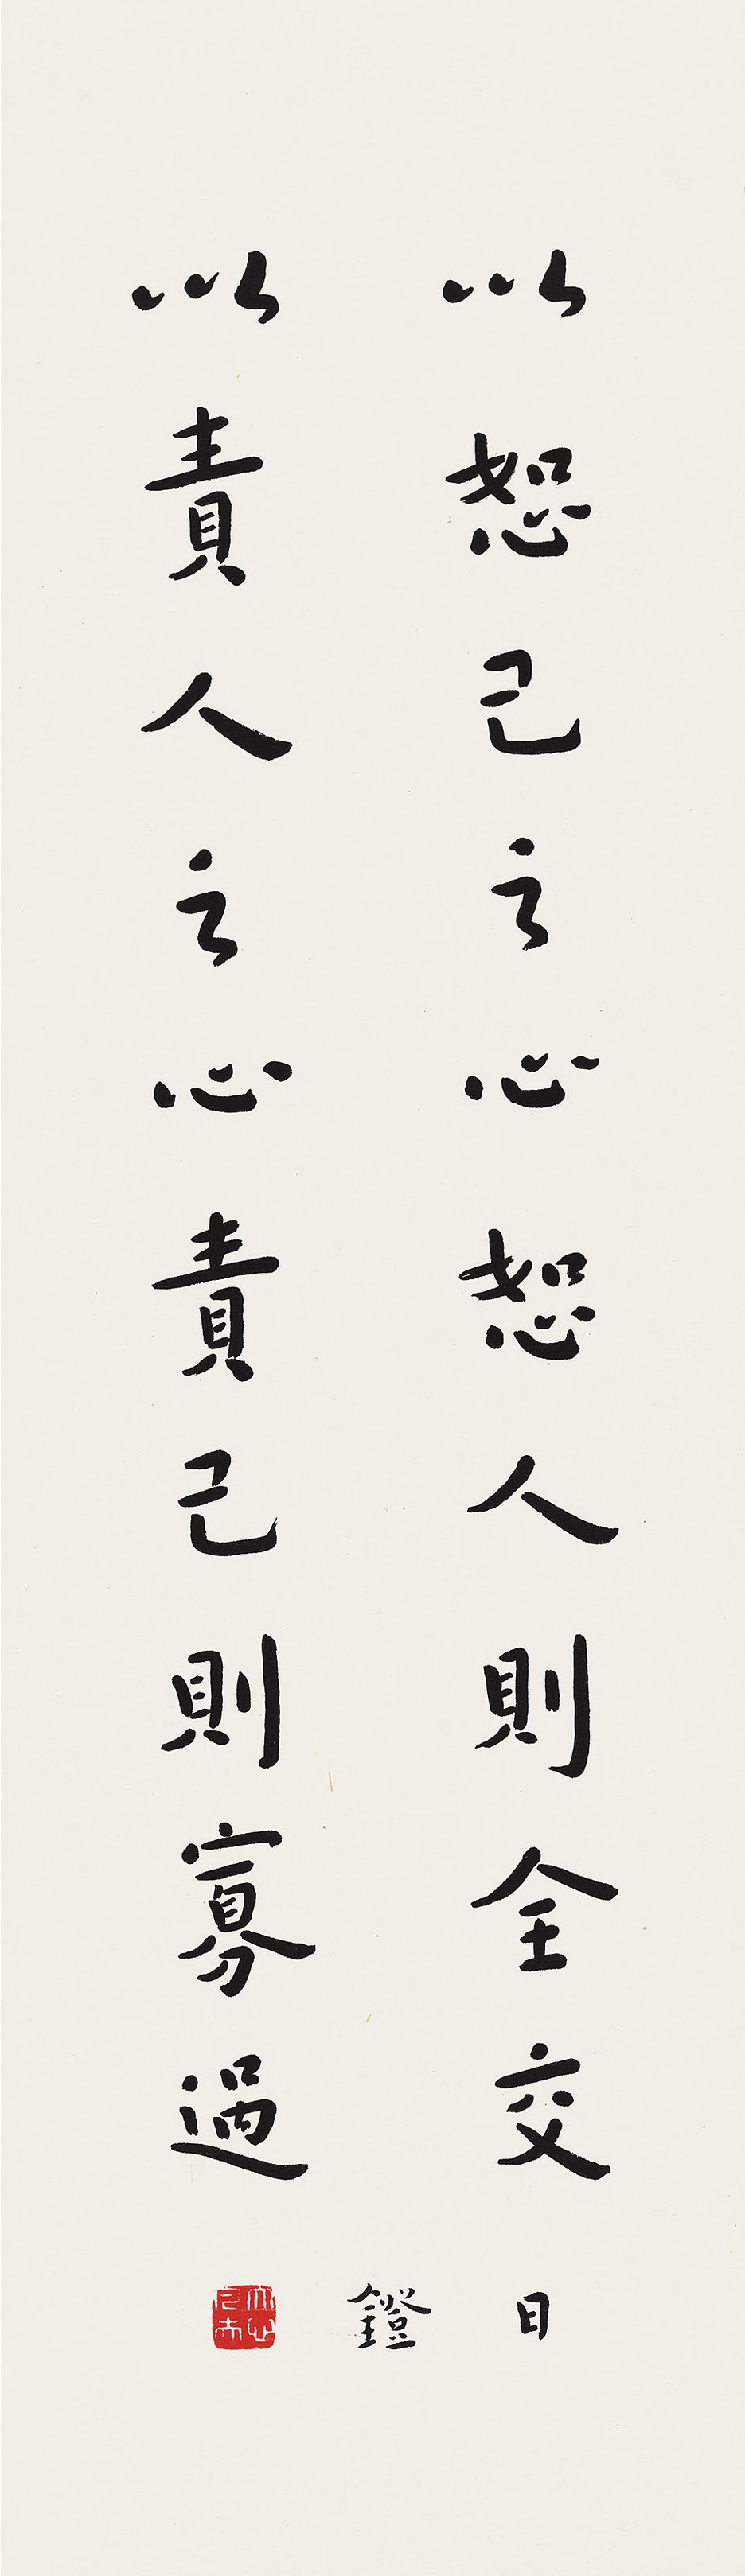 以恕己之心恕人則全交
以責人之心責己則寡過
日鐙